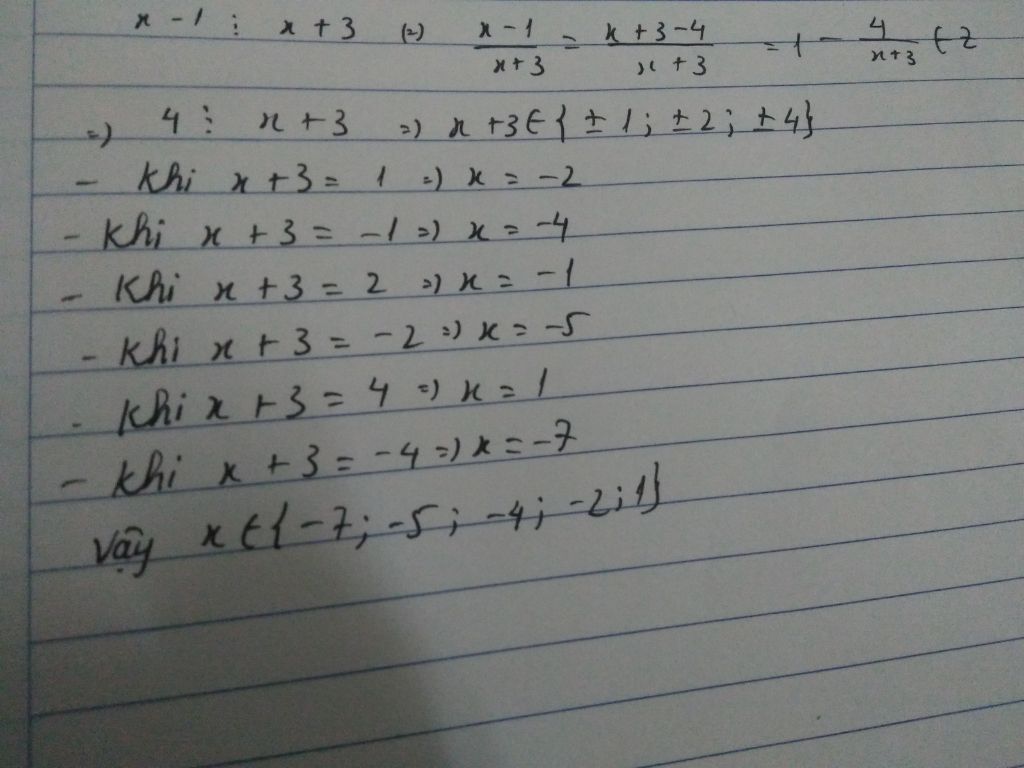 x - 1 ⋮ x + 3 (=) x - 1 / x + 3 = x + 3 - 4 / x + 3 = 1 - 4 / x + 3 ∈ Z
=) 4 ⋮ x + 3 =) x + 3 ∈ { ± 1 ; ± 2 ; ± 4 }
- Khi x + 3 = 1 =) x = -2
- Khi x + 3 = -1 =) x = -4
- Khi x + 3 = 2 =) x = -1
- Khi x + 3 = -2 =) x = -5
- Khi x + 3 = 4 =) x = 1
- Khi x + 3 = -4 =) x = -7
Vậy x ∈ { -7 ; -5 ; -4 ; -2 ; 1 }